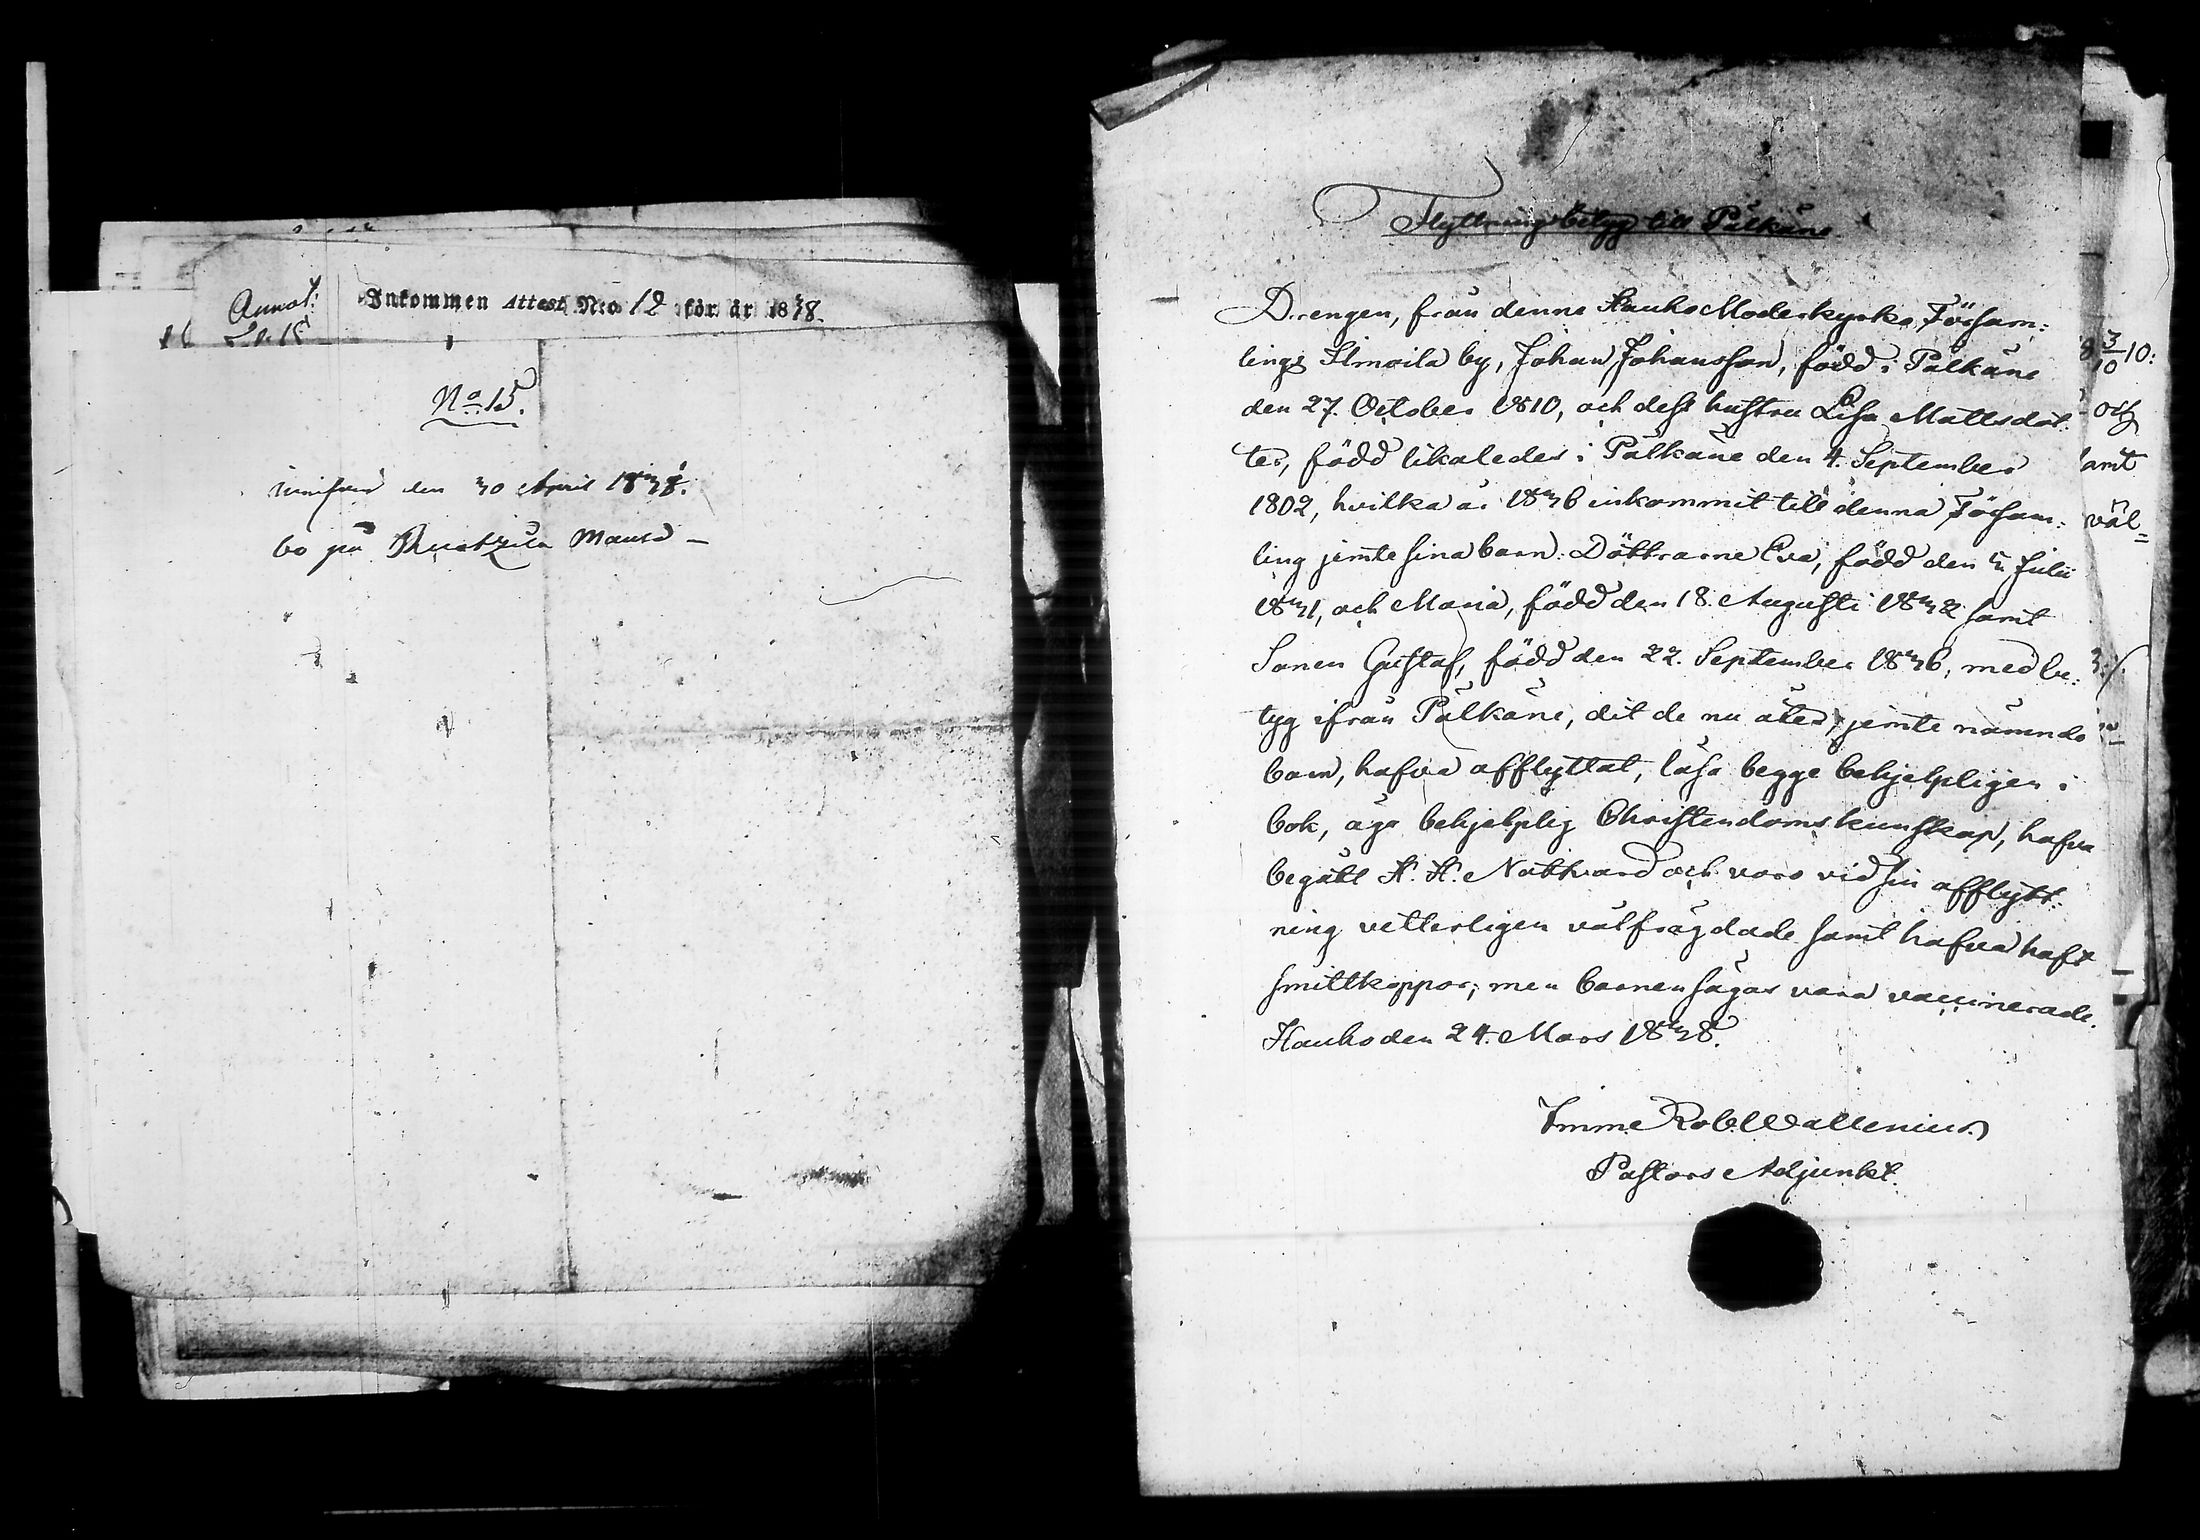 Annot:
Inkommen Attest N:o 12 för år 1838.
No 15.
den 30 April 1838.
bo på
Flyttningsbetyg till Pälkäne
Drengen, från denne Hauho Moderkyrko Försam:
lings Ilmoila by, Johan Johansson, född i Pälkäne
den 27. October 1810, och dess hustru Lisa Mattsdot:
ter, född likaledes i Pälkäne den 4. September
1802, hvilka år 1836 inkommit till denna Försam:
ling jemte sina barn: Döttrarne Eva, född den 5 Julii
1831, och Maria, född den 18. Augusti 1832 samt
Sonen Gustaf, född den 22. September 1836, med be:
tyg ifrån Pälkäne, dit de nu åter, jemte nämnde
barn, hafva afflyttat, läsa begge behjelpligen i
bok, äga behjelplig Christendomskunskap, hafva
begått H. H. Nattvard och voro vid sin afflytt:
ning vetterligen välfrägdade samt hafva haft
smittkoppor; men barnen sägas vara vaccinerade.
Hauho den 24. Mars 1838.
Imm. Rob. Wallenius
Pastors Adjunkt.
3/10 10:
och
samt
väl=